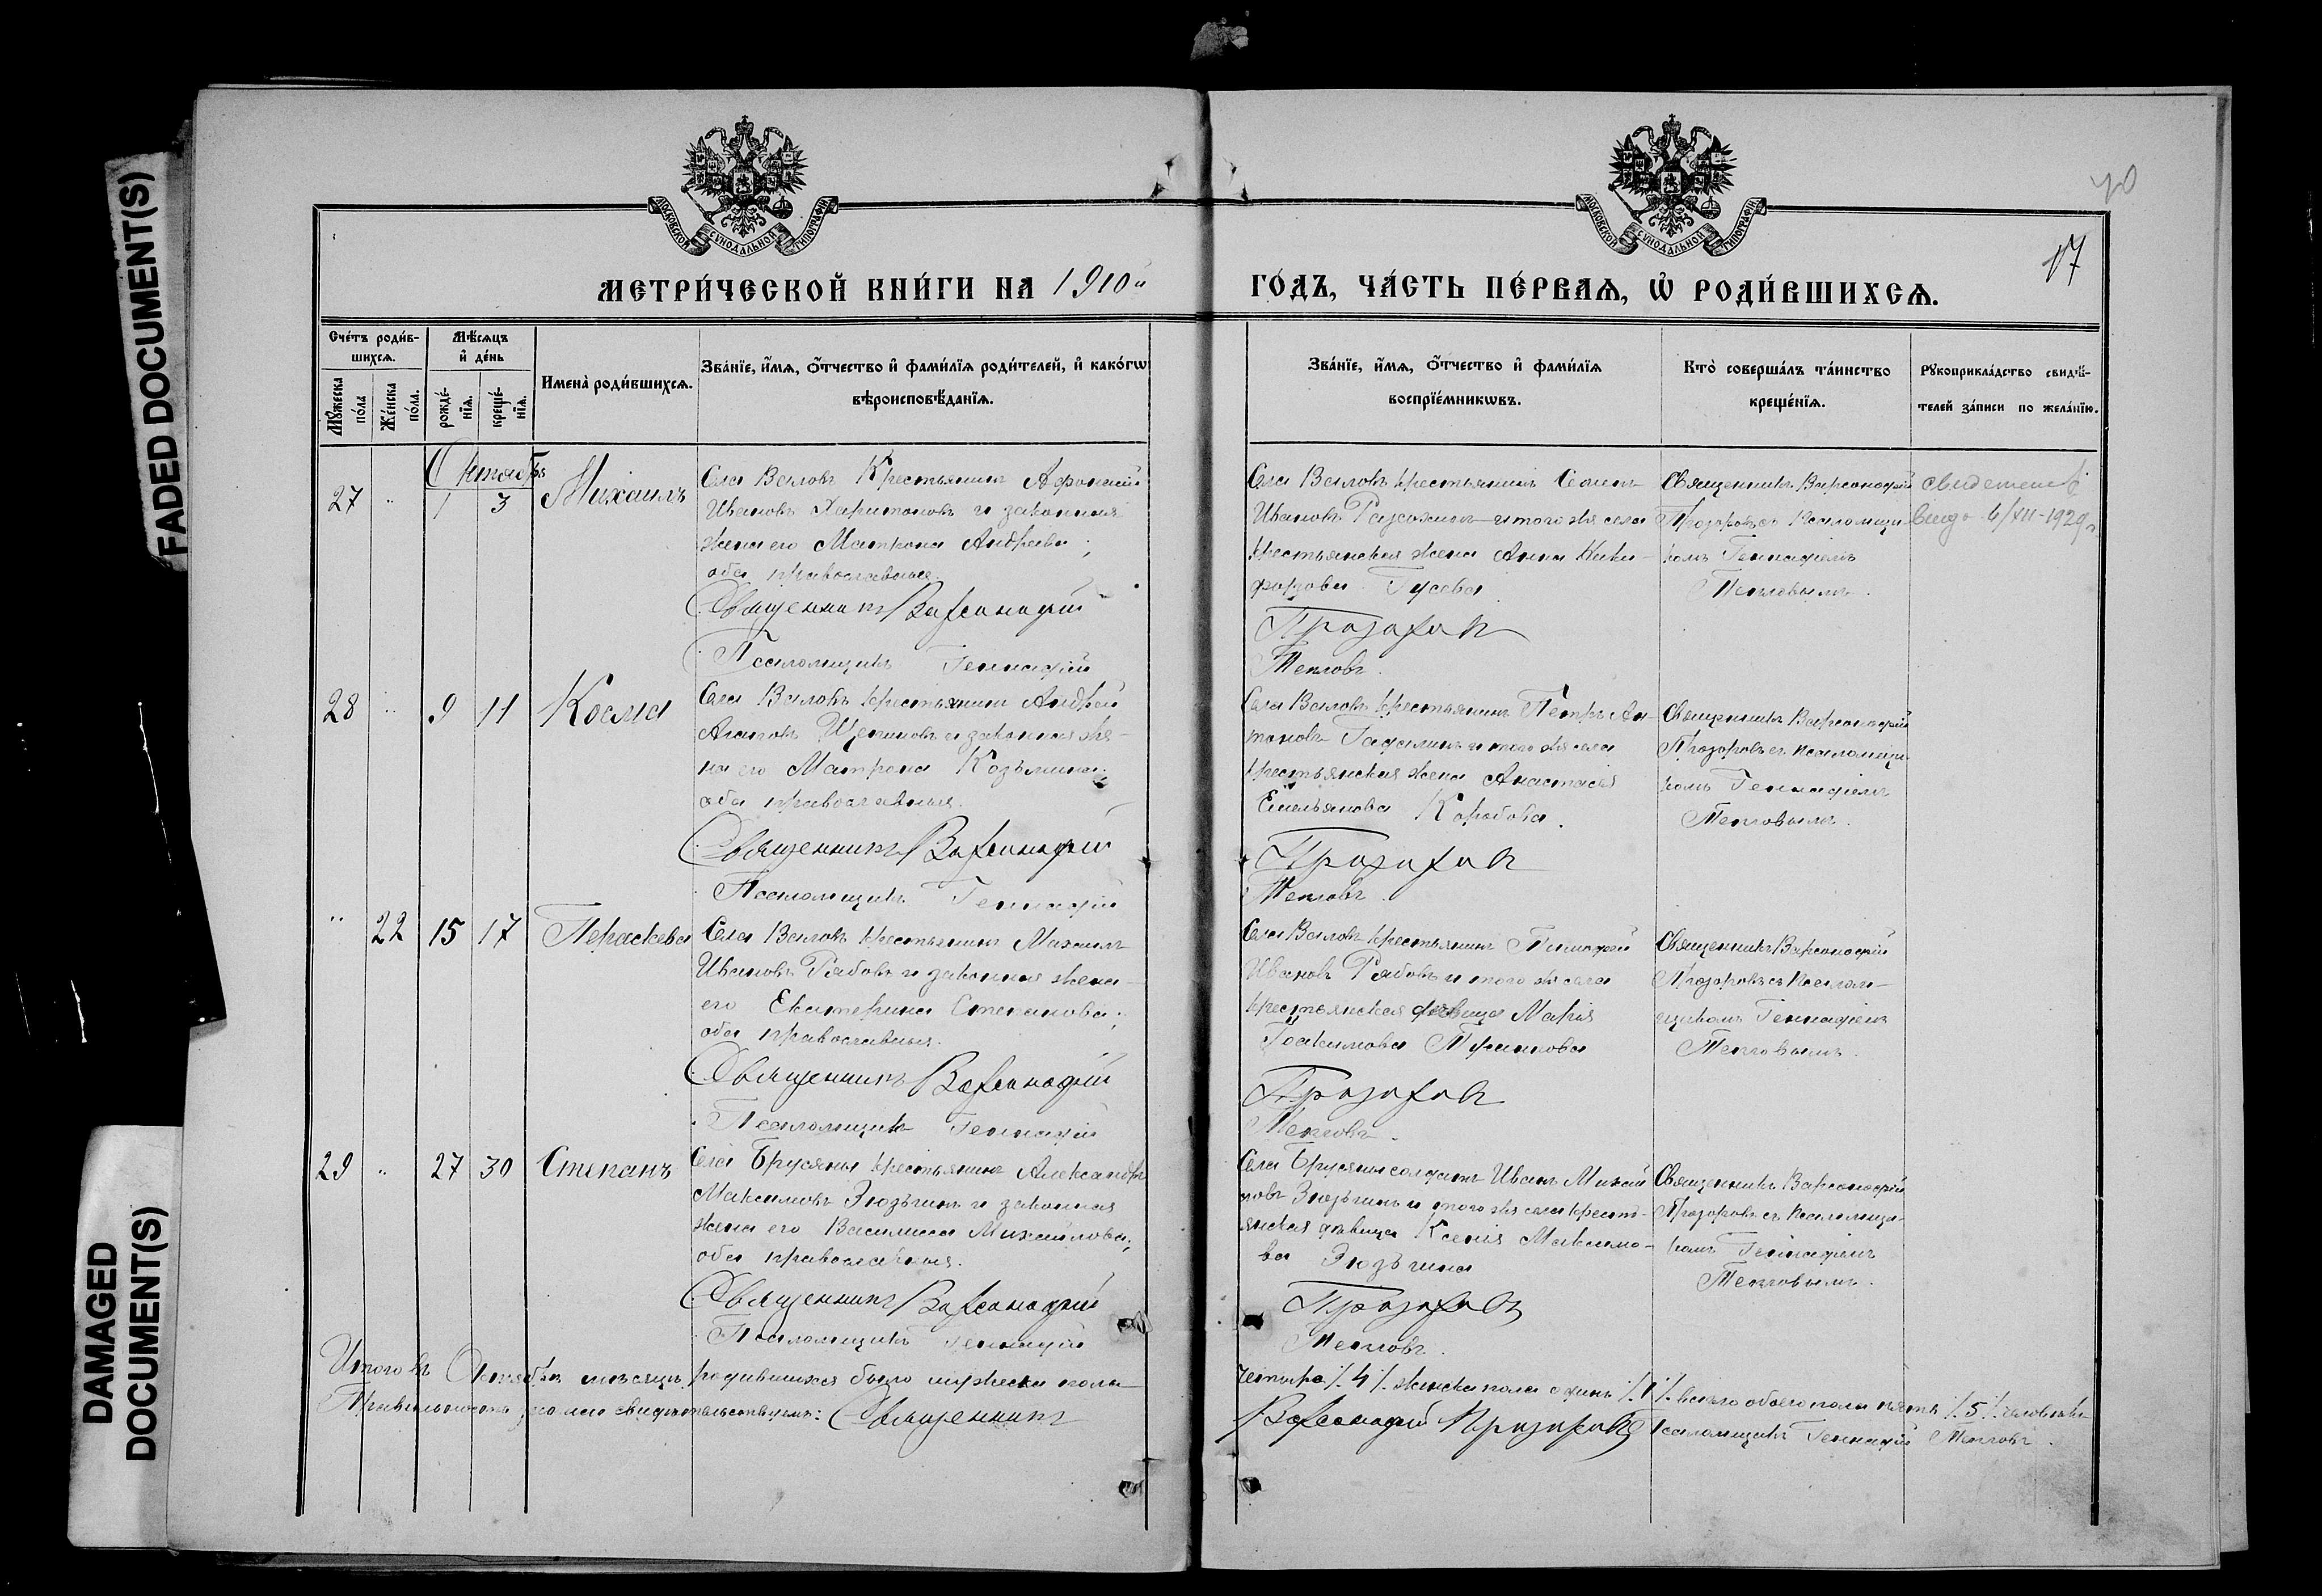 FADED DOCUMENT(S)
DAMAGED
DOCUMENT(S)
МОСКОВСКОЙ СѴНОДАЛЬНОЙ ТИПОГРАФІИ
МОСКОВСКОЙ СѴНОДАЛЬНОЙ ТИПОГРАФІИ
17
МЕТРИ́ЧЕСКОЙ КНИ́ГИ НА 1910й
ГО́ДЪ, ЧА́СТЬ ПЕ́РВАѦ, Ѡ҆ РОДИ́ВШИХСѦ.
Сче́тъ роди́в-
шихсѧ.
Мꙋ́жеска
по́ла
Же́нска
по́ла.
Мѣ́сѧцъ
и҆ де́нь
рожде́-
нїѧ.
креще́-
нїѧ.
И҆мена̀ роди́вшихсѧ.
Зва́нїе, и҆́мѧ, ѻ҆́тчество и҆ фами́лїѧ роди́телей, и҆ како́гѡ
вѣроисповѣ́данїѧ.
Зва́нїе, и҆́мѧ, ѻ҆́тчество и҆ фами́лїѧ
воспрїе́мникѡвъ.
Кто̀ соверша́лъ та́инство
креще́нїѧ.
Рꙋкоприкла́дство свидѣ́-
телей за́писи по жела́нїю.
Октябрь
27 " 1 3 Михаилъ
Села Валовъ Крестьянинъ Афонасій
Ивановъ Харитоновъ и законная
жена его Матрона Андреева;
оба православные.
Священникъ Варсонофій
Псаломщикъ Геннадій
Села Валовъ крестьянинъ
Ивановъ и того же села
крестьянская жена Анна Ники-
форова Гусева
Прозоровъ
Тепловъ.
Священникъ Варсонофій
Прозоровъ съ Псаломщи-
комъ Геннадіемъ
Тепловымъ.
6/XII-1929г.
28 " 9 11 Косма
Села Валовъ крестьянинъ Андрей
Щепиновъ и законная же-
на его Матрона Козьмина;
оба православные.
Священникъ Варсонофій
Псаломщикъ Геннадій
Села Валовъ крестьянинъ Петръ Ан-
тоновъ и того же села
крестьянская жена Анастасія
Емельянова Коробова.
Прозоровъ
Тепловъ.
Священникъ Варсонофій
Прозоровъ съ псаломщи-
комъ Геннадіемъ
Тепловымъ.
" 22 15 17 Параскева
Села Валовъ крестьянинъ Михаилъ
Ивановъ Рябовъ и законная жена
его Екатерина Степанова;
оба православные.
Священникъ Варсонофій
Псаломщикъ Геннадій
Села Валовъ крестьянинъ Тимофей
Ивановъ Рябовъ и того же села
крестьянская девица Марія
Іоакимова
Прозоровъ
Тепловъ.
Священникъ Варсонофій
Прозоровъ съ Псалом-
щикомъ Геннадіемъ
Тепловымъ.
29 " 27 30 Степанъ
Села Брусяны крестьянинъ Александръ
Максимовъ Зюзьгинъ и законная
жена его Василиса Михайлова;
оба православные.
Священникъ Варсонофій
Псаломщикъ Геннадій
Села Брусяны солдатъ Иванъ Михай
ловъ Зюзьгинъ и того же села крест-
янская девица Ксенія Максимо-
ва Зюзьгина
Прозоровъ
Тепловъ.
Священникъ Варсонофій
Прозоровъ съ Псаломщи-
комъ Геннадіемъ
Тепловымъ.
Итого въ Октябрѣ мѣсяцѣ родившихся было мужеска пола
четыре /. 4 /. женска пола одинъ /. 1 /. всего обоего пола пять /. 5 /. человѣкъ
свидѣтельствуемъ: Священникъ
Варсонофій Прозоровъ Псаломщикъ Геннадій Тепловъ.